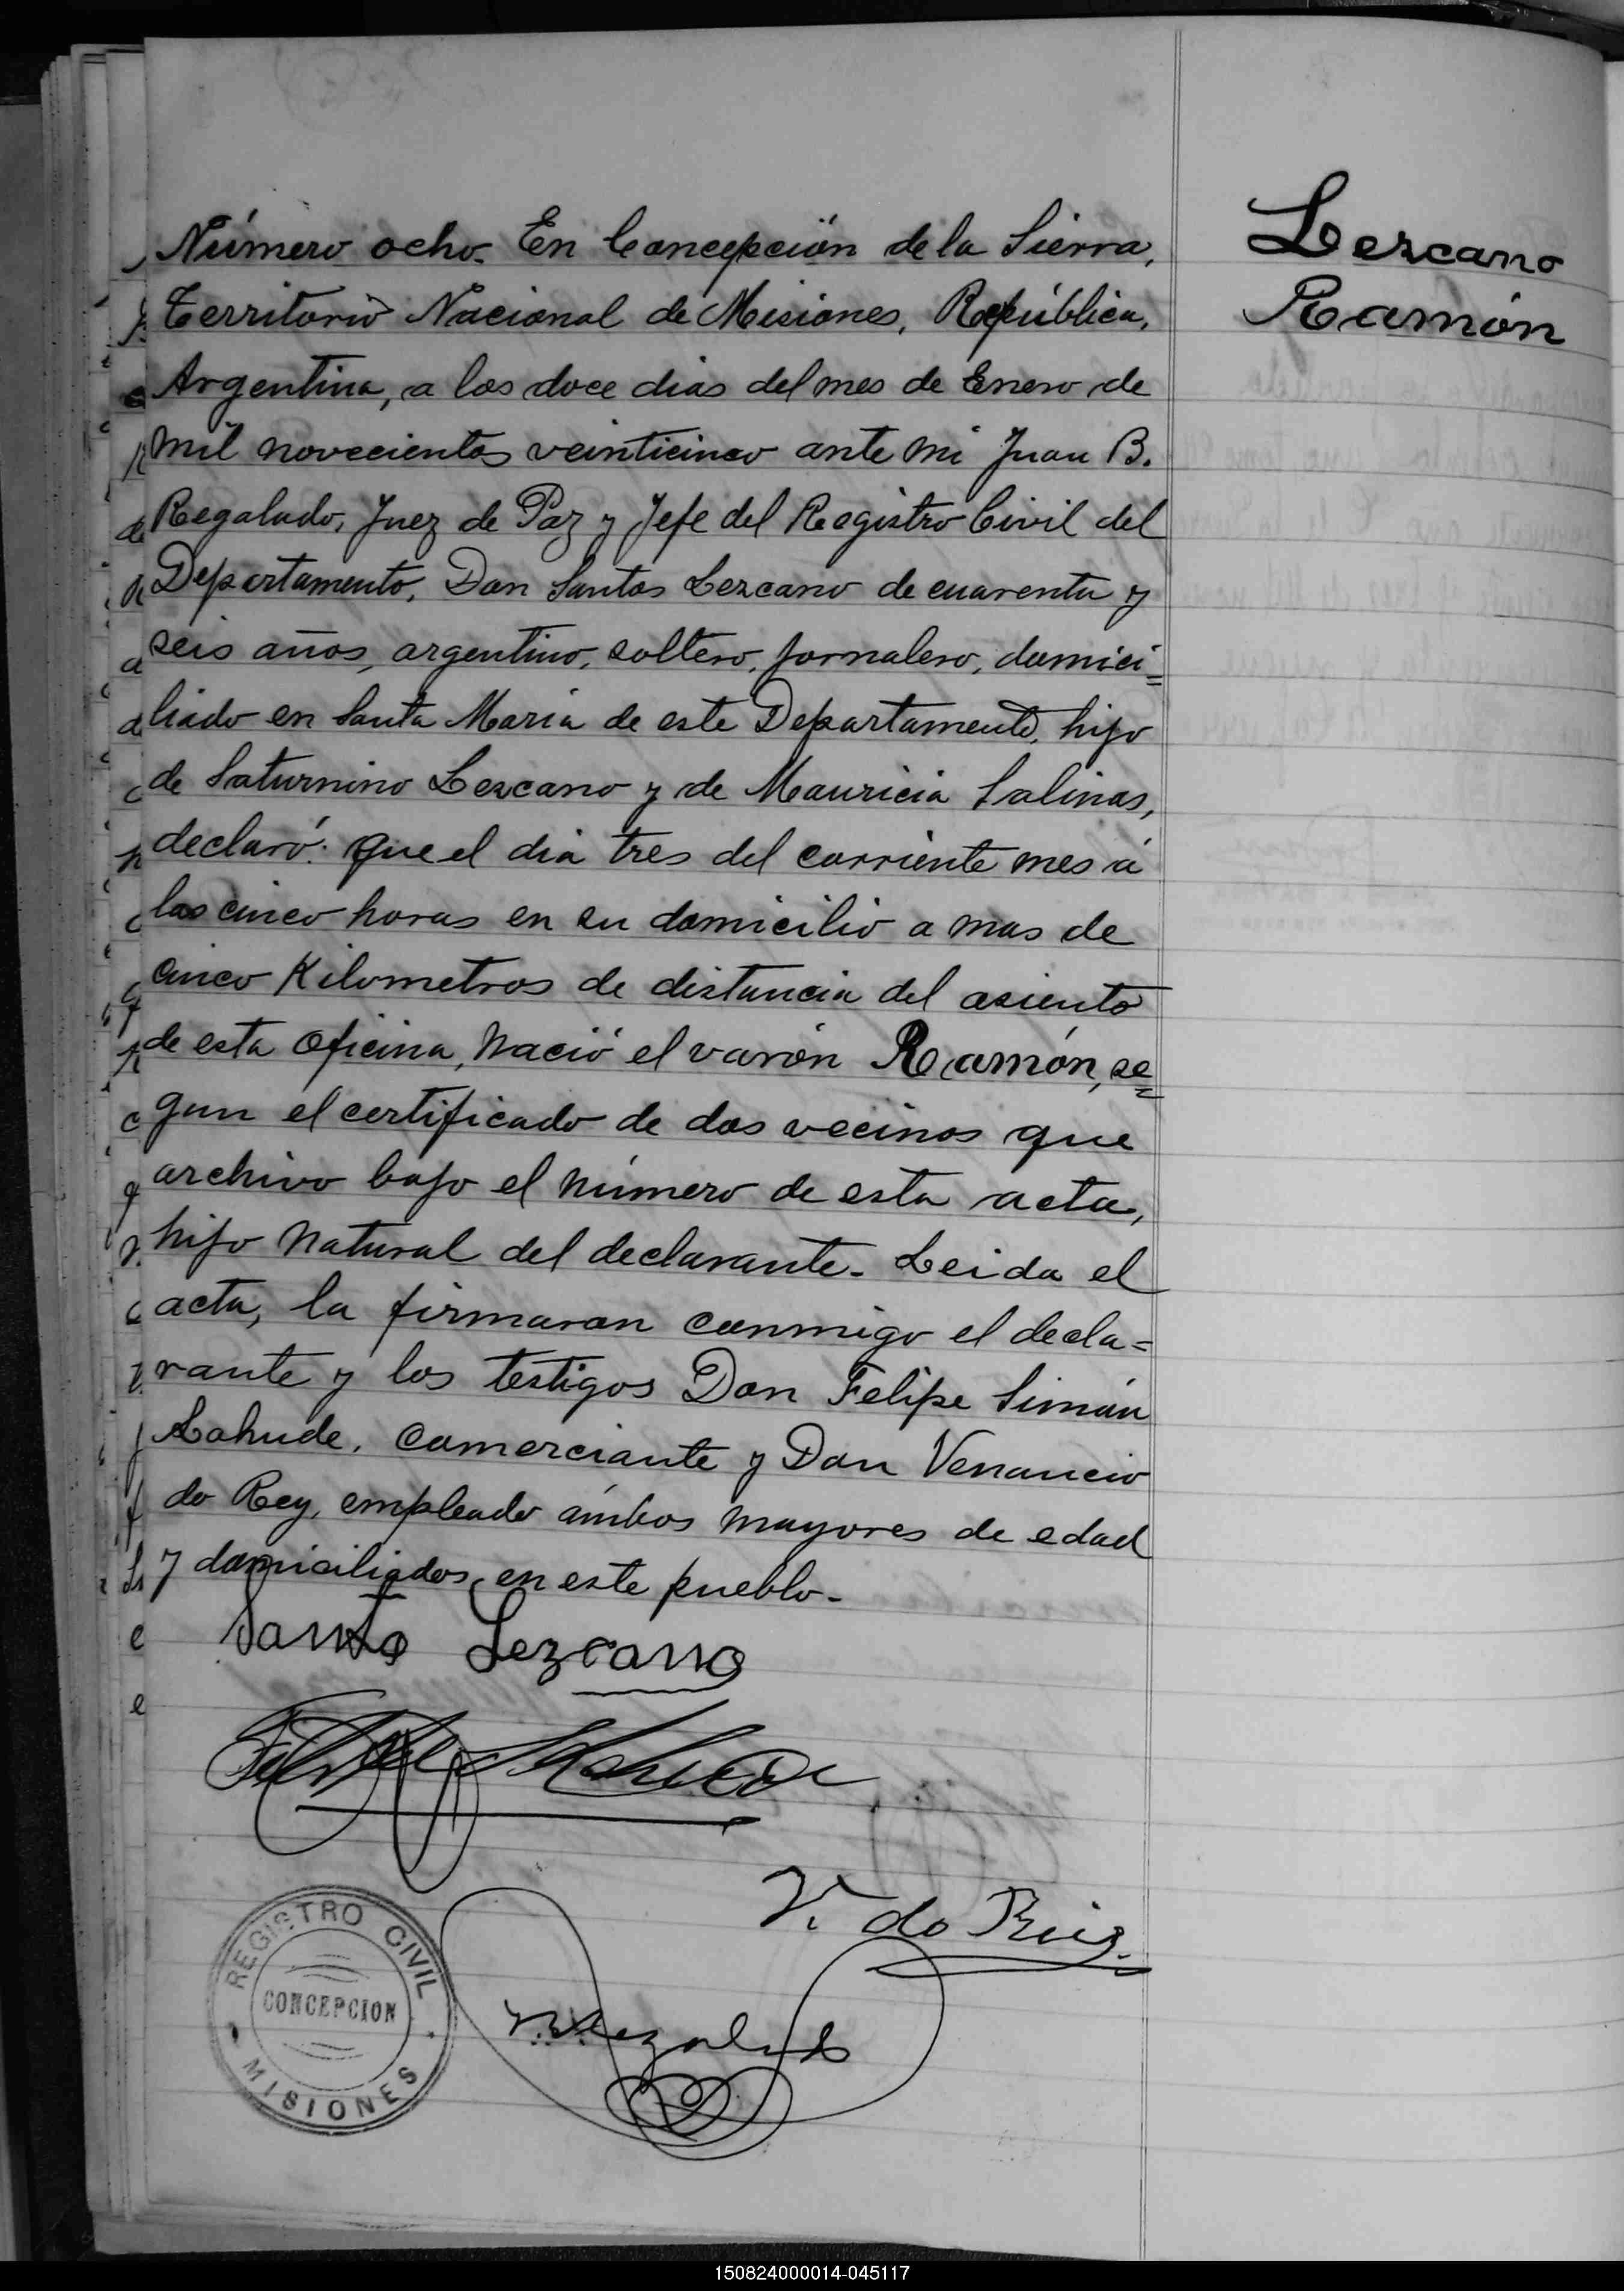 Lezcano
Ramón
Número ocho. En Concepción de la Sierra,
Territorio Nacional de Misiones, República,
Argentina, a los doce dias del mes de Enero de
mil novecientos veinticinco ante mi Juan B.
Regalado, Juez de Paz y Jefe del Registro Civil del
Departamento, Don Santos Lezcano de cuarenta y
seis años, argentino, soltero, jornalero, domici=
liado en Santa María de este Departamento, hijo
de Saturnino Lezcano y de Mauricia Salinas,
declaró: que el dia tres del corriente mes á
las cinco horas en su domicilio a mas de
cinco Kilometros de distancia del asiento
de esta oficina, nació el varón Ramón, se=
gun el certificado de dos vecinos que
archivo bajo el número de esta acta,
hijo natural del declarante. Leida el
acta, la firmaron conmigo el decla=
rante y los testigos Don Felipe Simón
Lahude, comerciante y Don Venancio
do Rey, empleado ámbos mayores de edad
y domiciliados en este pueblo.
Santo Lezcano
Felipe Lahude
V. do Rey
REGISTRO CIVIL
CONCEPCION
MISIONES
150824000014-045117